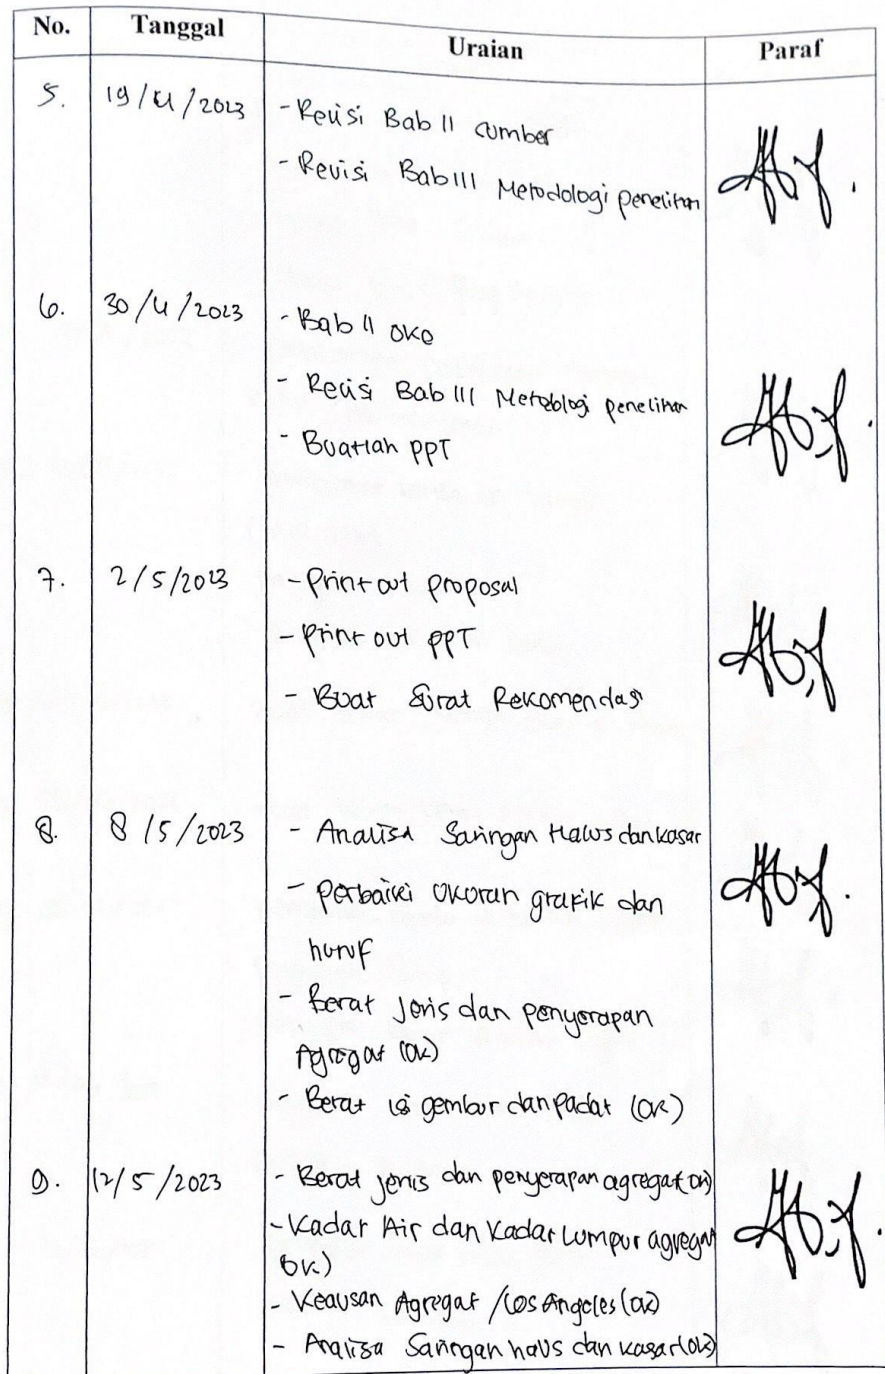 No. Tanggal Uraian Paraf
5. 19/4/2023 - Revisi Bab II sumber
- Revisi Bab III Metodologi penelitian
6. 30/4/2023 - Bab II oke
- Revisi Bab III Metodologi penelitian
- Buatlah PPT
7. 2/5/2023 - Print out proposal
- Print out PPT
- Buat Surat Rekomendasi
8. 8/5/2023 - Analisa Saringan Halus dan kasar
- Perbaiki Ukuran grafik dan
huruf
- Berat Jenis dan penyerapan
Agregat (OK)
- Berat isi gembur dan padat (OK)
9. 12/5/2023 - Berat jenis dan penyerapan agregat (OK)
- Kadar Air dan Kadar Lumpur agregat
OK)
- Keausan Agregat / Los Angeles (OK)
- Analisa Saringan halus dan kasar (OK)